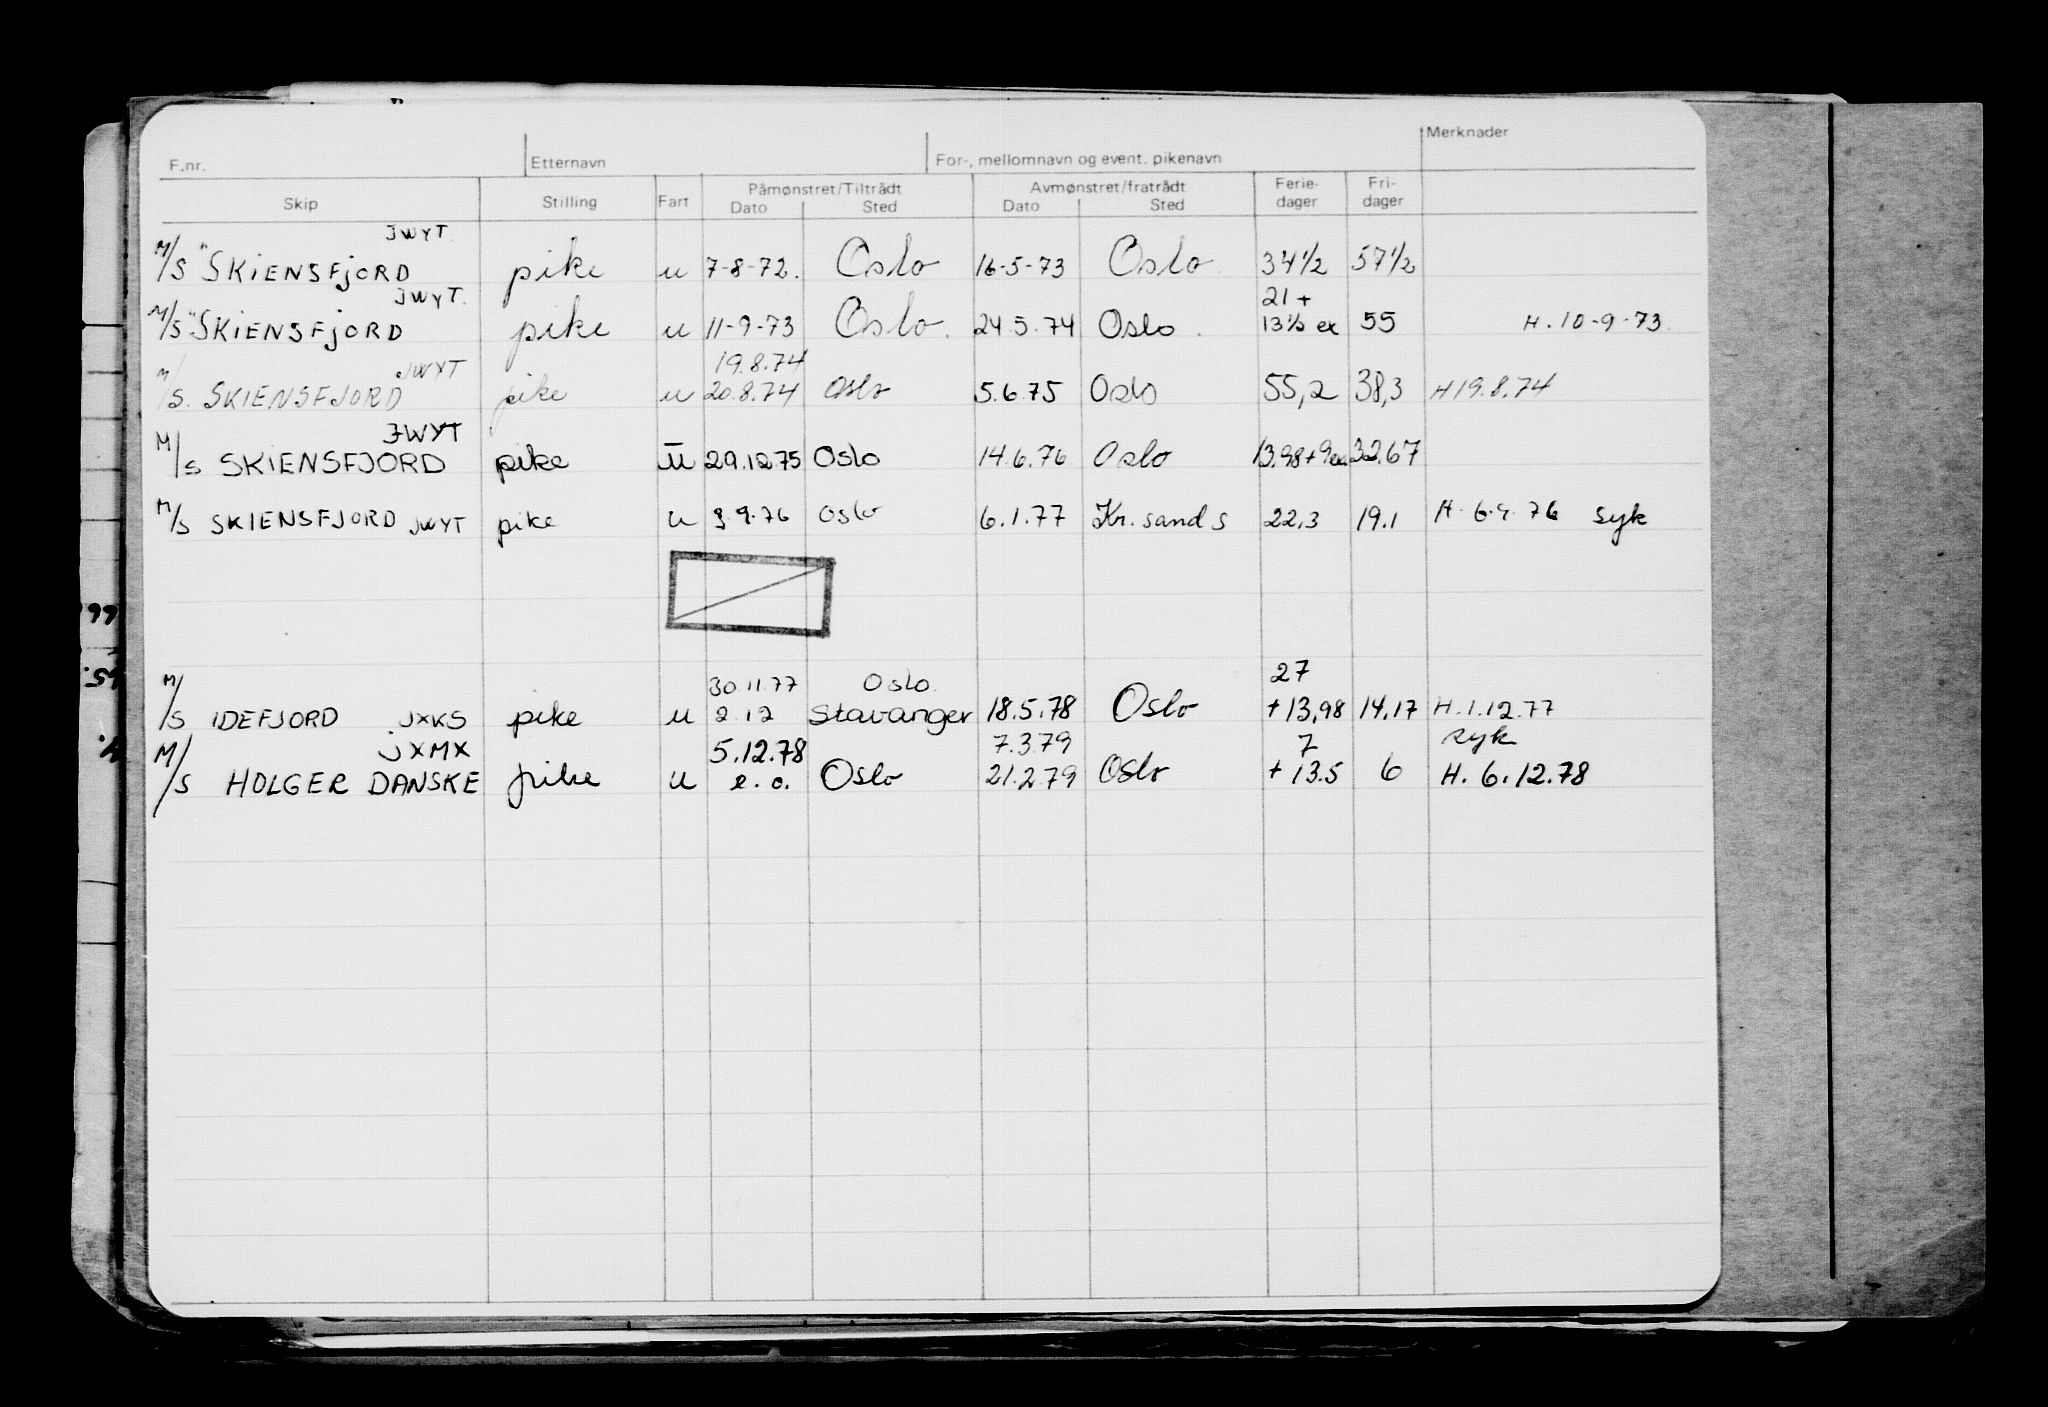 F.nr. Etternavn For-, mellomnavn og event. pikenavn Merknader
Skip Stilling Fart Påmønstret/Tiltrådt Avmønstret/fratrådt Ferie- Fri-
Dato Sted Dato Sted dager dager
JWYT.
M/S "SKiENSFjORD pike u 7-8-72. Oslo 16-5-73 Oslo. 34 1/2 57 1/2
JWYT. 21 +
M/S "SKiENSFjORD pike u 11-9-73 Oslo. 24.5.74 Oslo. 13 1/2 ex 55 H. 10-9-73.
JWYT 19.8.74
M/S. SKIENSFJORD pike u 20.8.74 Oslo 5.6.75 Oslo 55,2 38,3 H 19.8.74
JWYT
M/S SKIENSFJORD pike u 29.12.75 Oslo 14.6.76 Oslo 13.98+9ex 32.67
M/S SKIENSFJORD JWYT pike u 9.76 Oslo 6.1.77 Kr.sand S 22,3 19.1 H. 6.9.76 syk
99
30.11.77 Oslo. 27
M/S IDEFJORD JXKS pike u 2.12 Stavanger 18.5.78 Oslo +13,98 14,17 H.1.12.77
JXMX 5.12.78 7.3.79 7 syk
M/S HOLGER DANSKE pike u e.o. Oslo 21.2.79 Oslo +13.5 6 H. 6.12.78